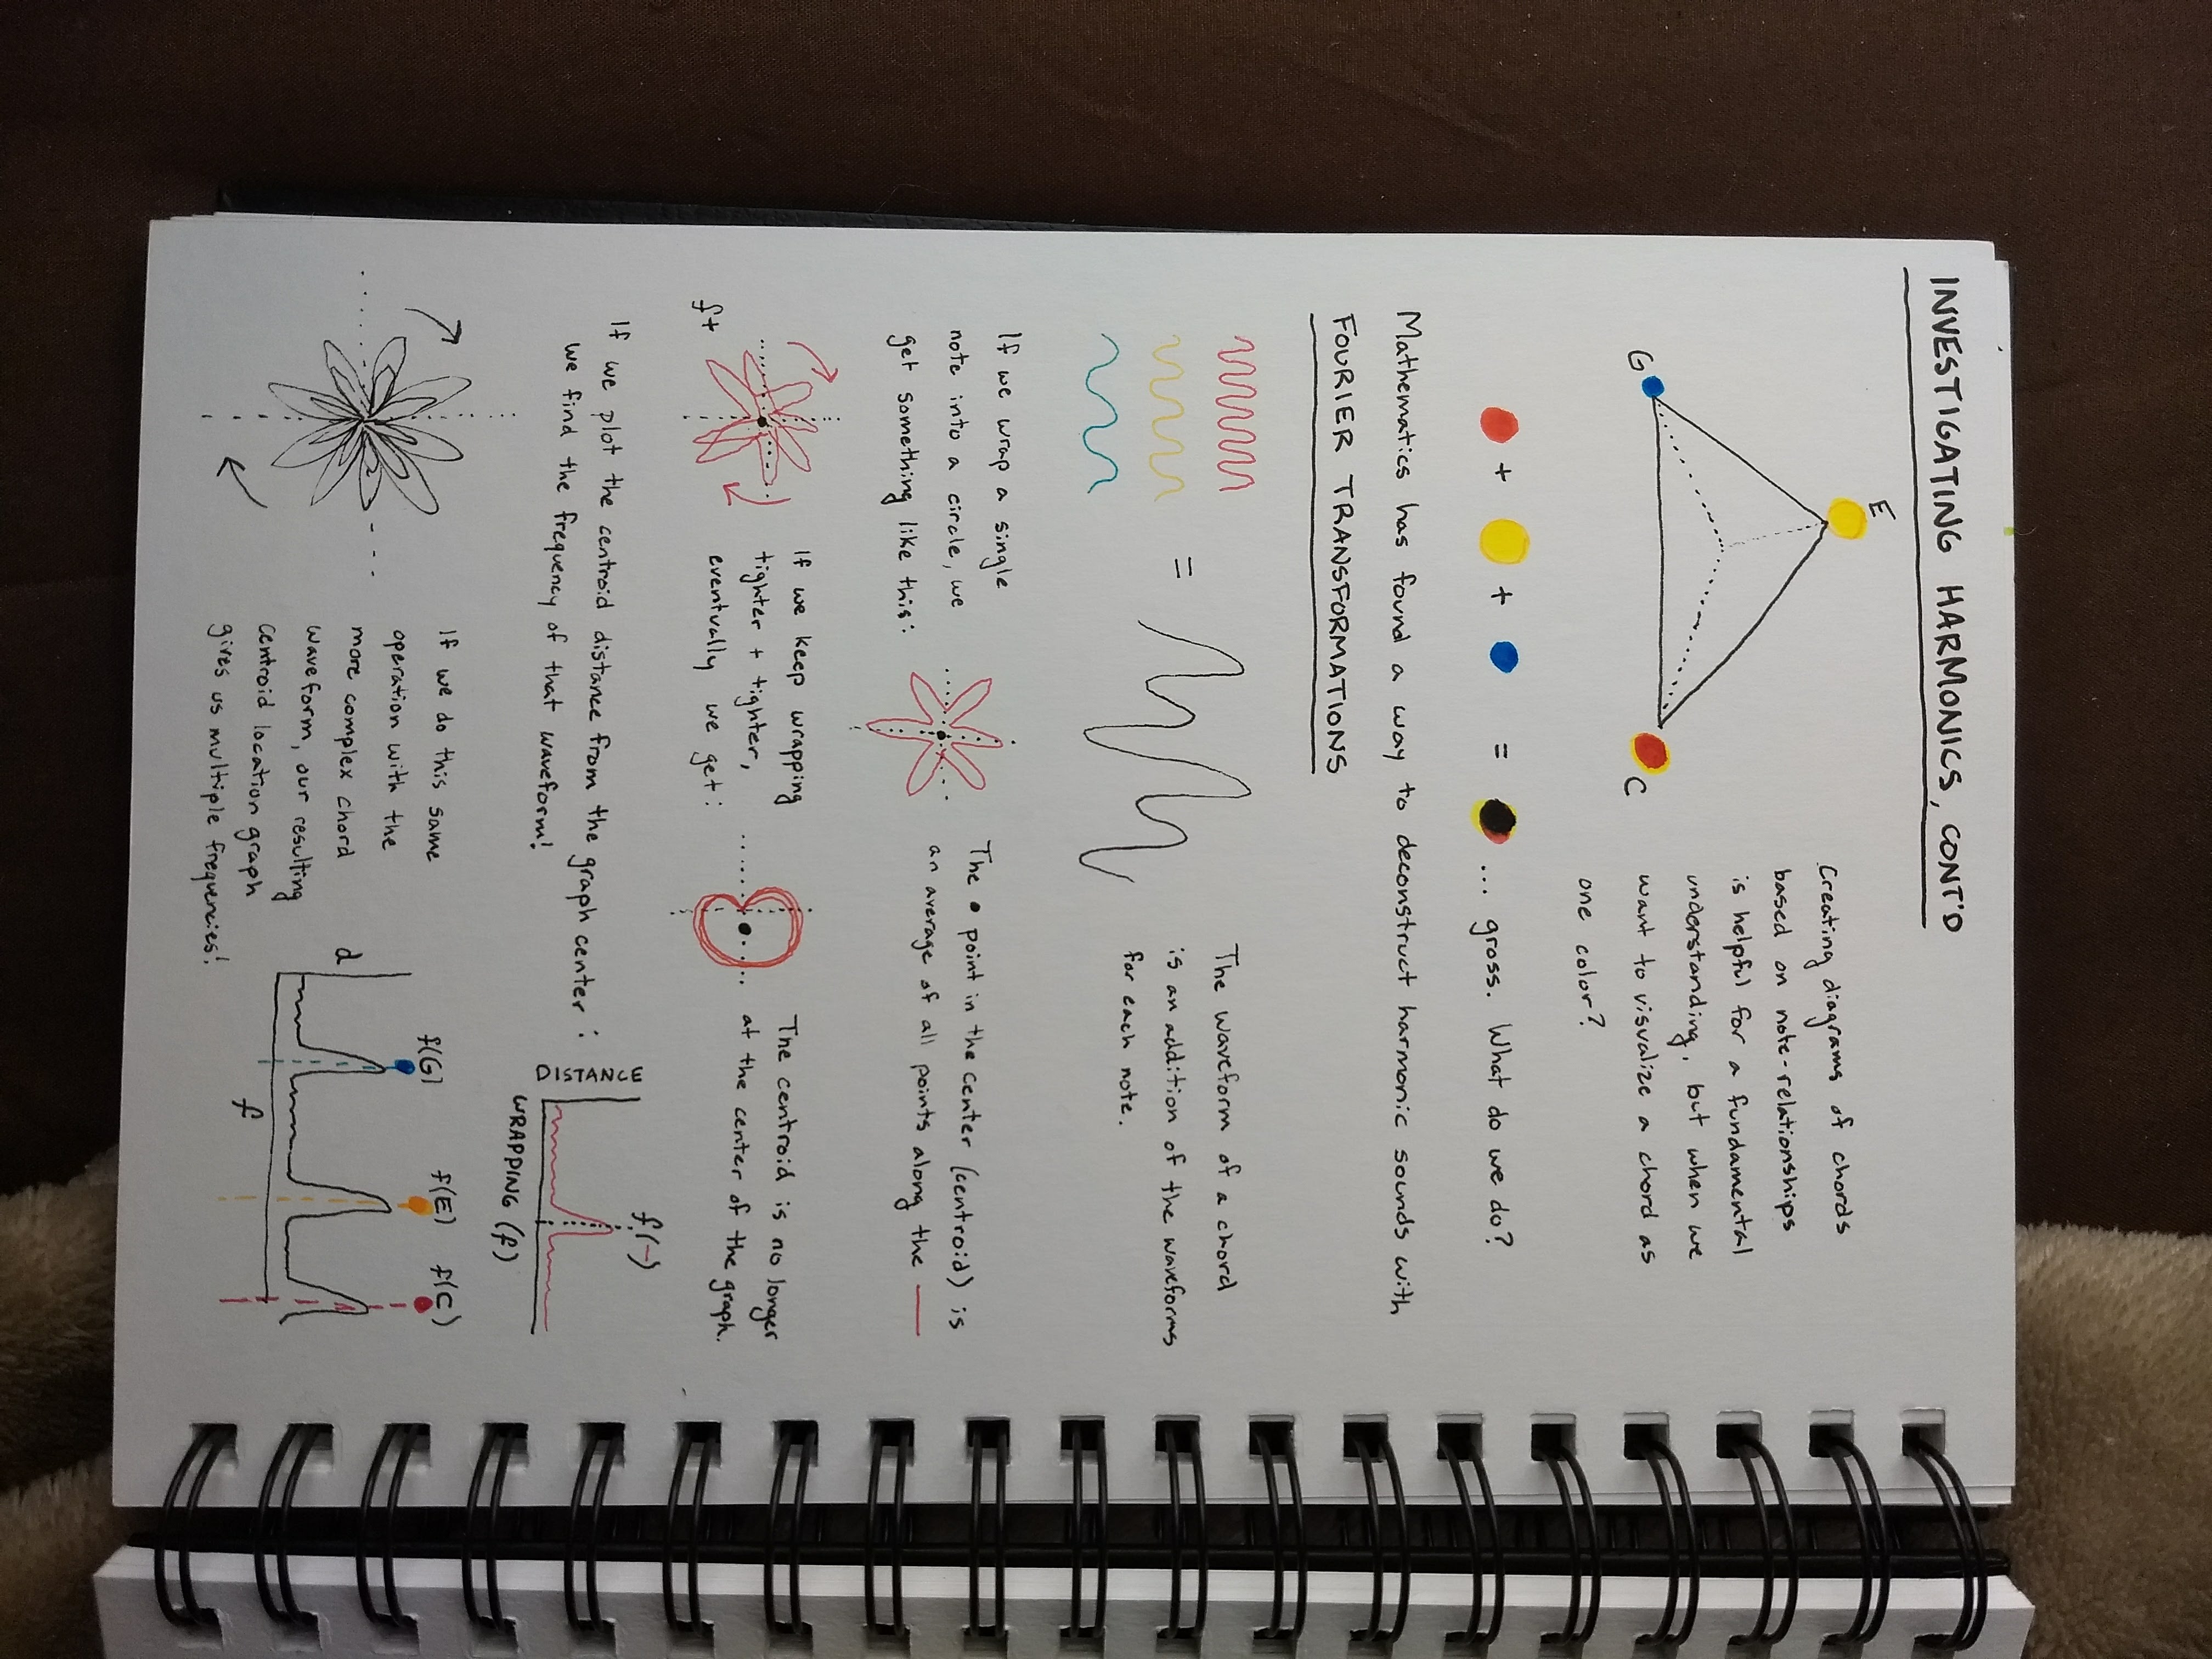 INVESTIGATING HARMONICS, CONT'D
E
G
C
Creating diagrams of chords
based on note-relationships
is helpful for a fundamental
understanding, but when we
want to visualize a chord as
one color?
+ + = ... gross. What do we do?
Mathematics has found a way to deconstruct harmonic sounds with
FOURIER TRANSFORMATIONS
=
The waveform of a chord
is an addition of the waveforms
for each note.
If we wrap a single
note into a circle, we
get something like this:
The • point in the center (centroid) is
an average of all points along the —
f+
If we keep wrapping
tighter + tighter,
eventually we get:
The centroid is no longer
at the center of the graph.
If we plot the centroid distance from the graph center:
we find the frequency of that waveform!
DISTANCE
f(-)
WRAPPING (f)
If we do this same
operation with the
more complex chord
waveform, our resulting
centroid location graph
gives us multiple frequencies!
d
f(G)
f(E)
f(C)
f